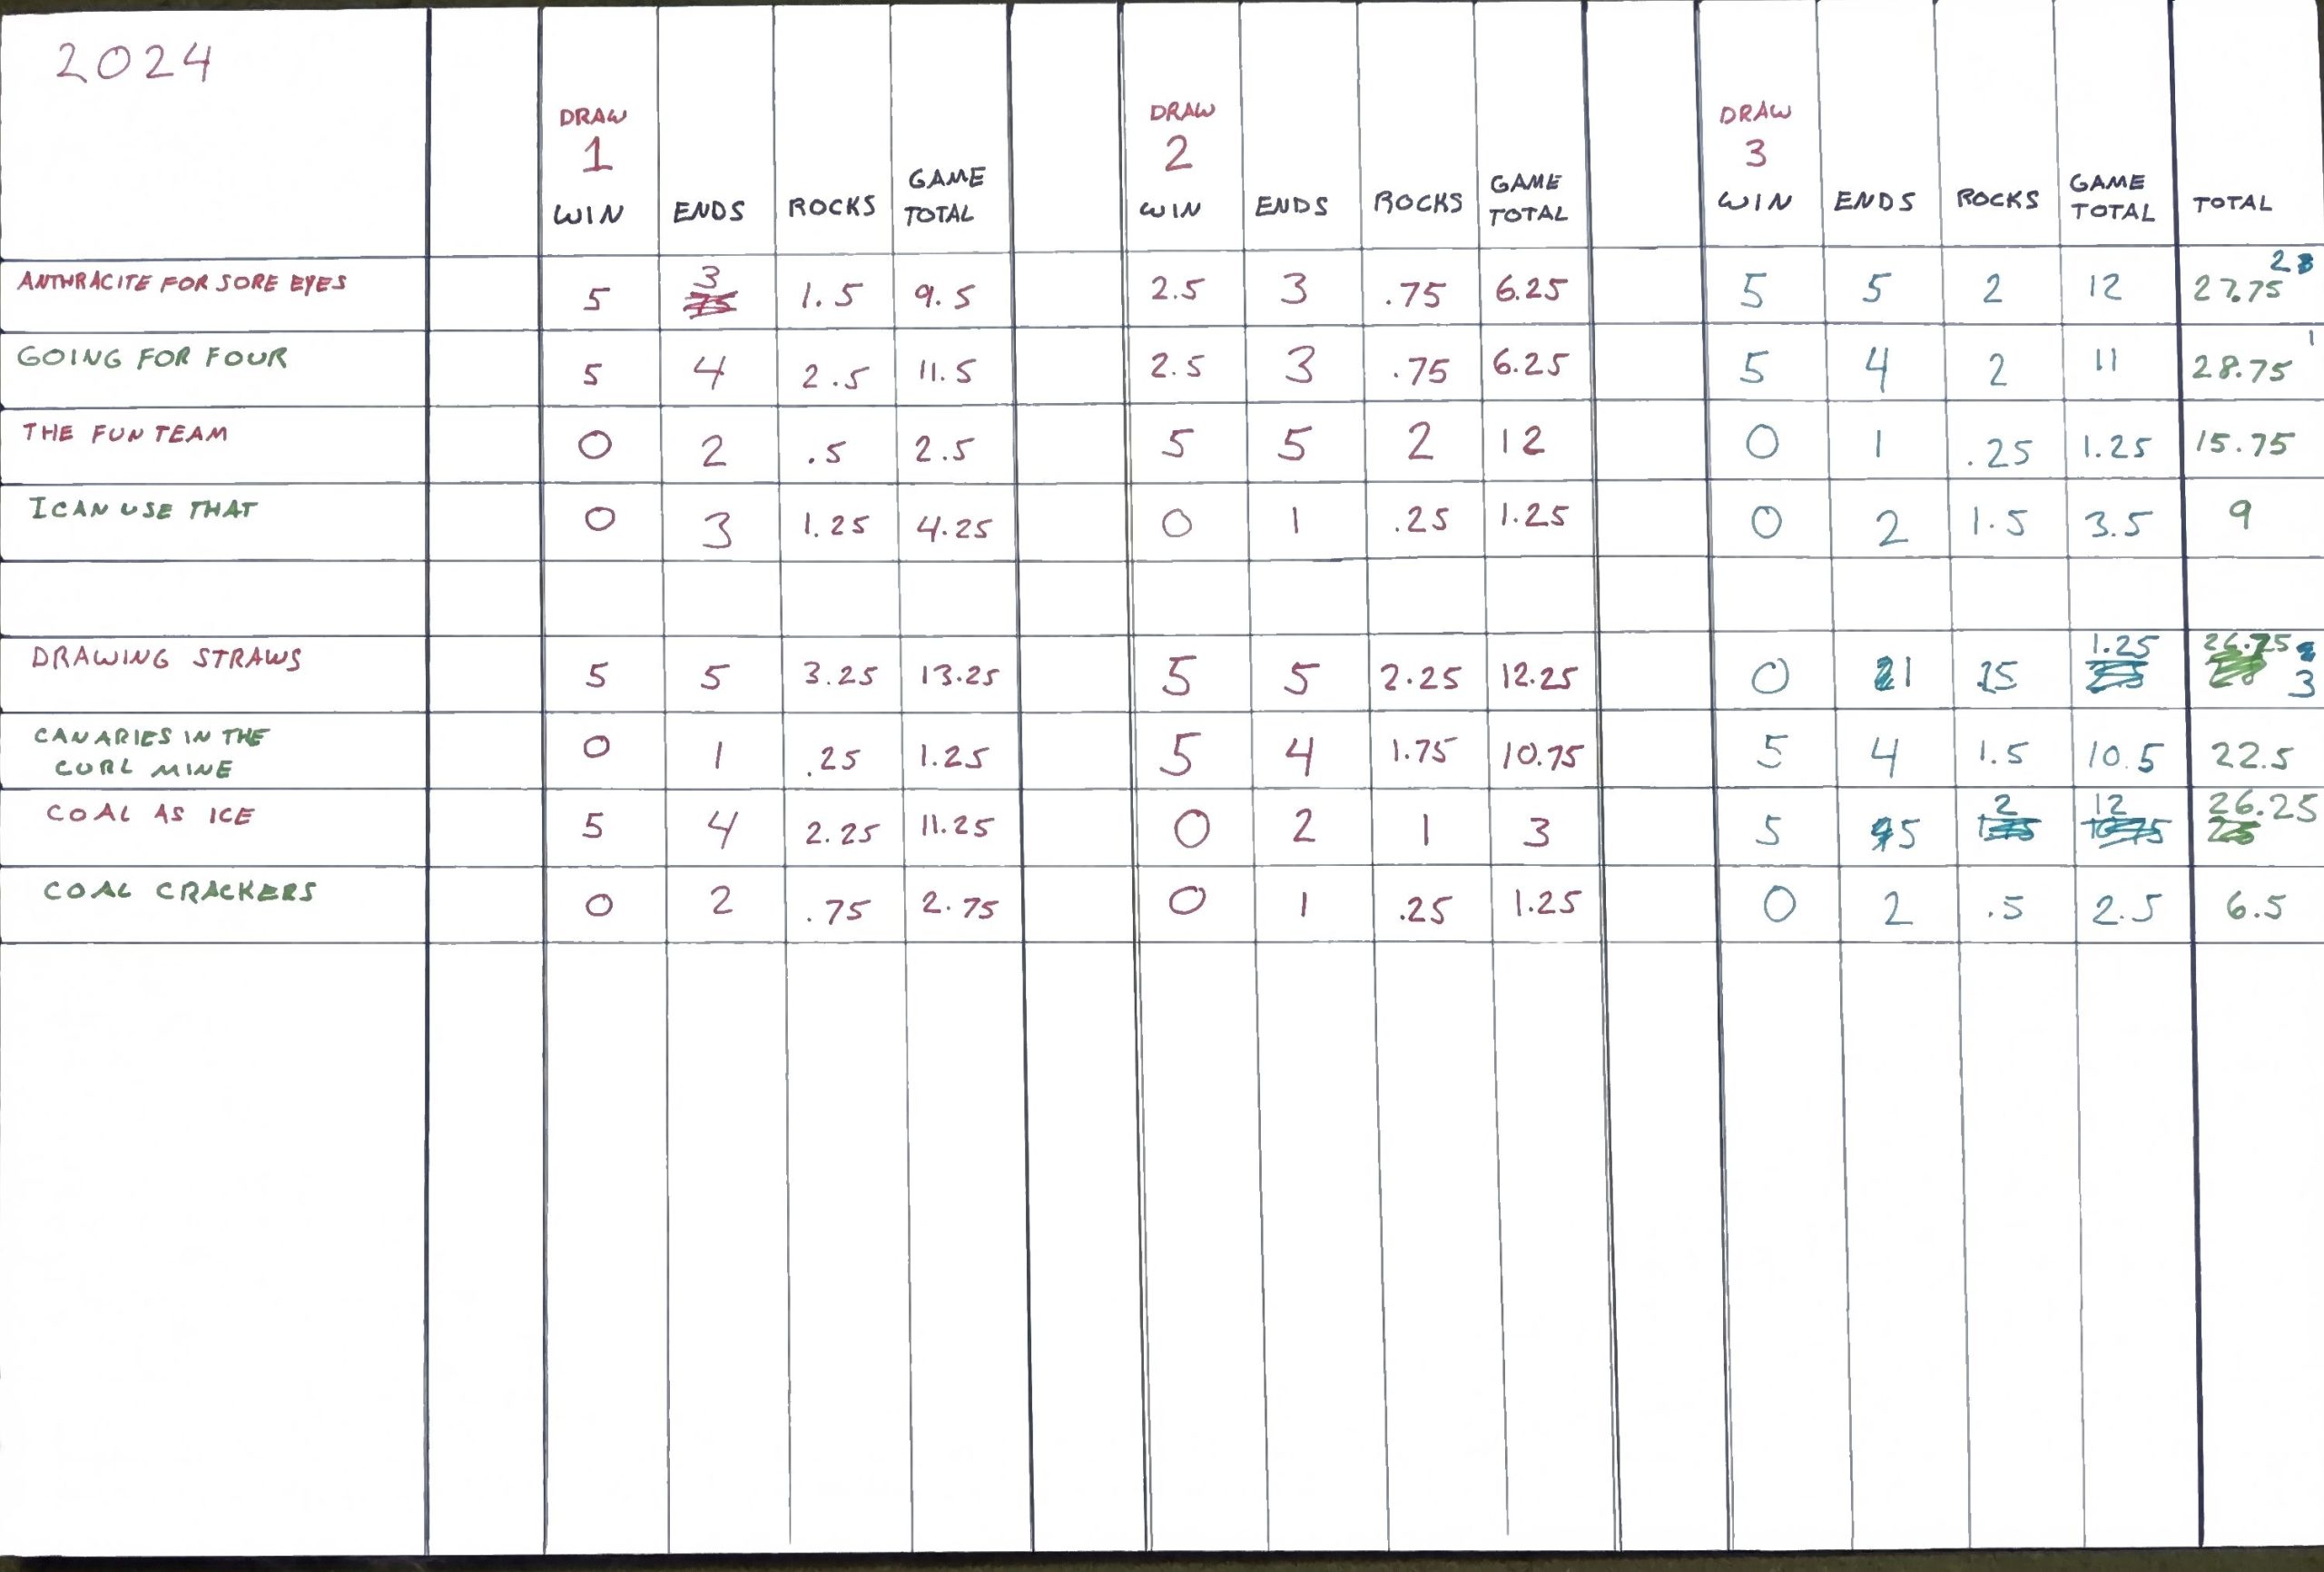 2024
DRAW DRAW DRAW
1 2 3
WIN ENDS ROCKS GAME TOTAL WIN ENDS ROCKS GAME TOTAL WIN ENDS ROCKS GAME TOTAL TOTAL
ANTHRACITE FOR SORE EYES 5 3 1.5 9.5 2.5 3 .75 6.25 5 5 2 12 27.75 2
GOING FOR FOUR 5 4 2.5 11.5 2.5 3 .75 6.25 5 4 2 11 28.75 1
THE FUN TEAM 0 2 .5 2.5 5 5 2 12 0 1 .25 1.25 15.75
I CAN USE THAT 0 3 1.25 4.25 0 1 .25 1.25 0 2 1.5 3.5 9
DRAWING STRAWS 5 5 3.25 13.25 5 5 2.25 12.25 0 1 .25 1.25 26.75 3
CANARIES IN THE
CURL MINE 0 1 .25 1.25 5 4 1.75 10.75 5 4 1.5 10.5 22.5
COAL AS ICE 5 4 2.25 11.25 0 2 1 3 5 5 2 12 26.25
COAL CRACKERS 0 2 .75 2.75 0 1 .25 1.25 0 2 .5 2.5 6.5